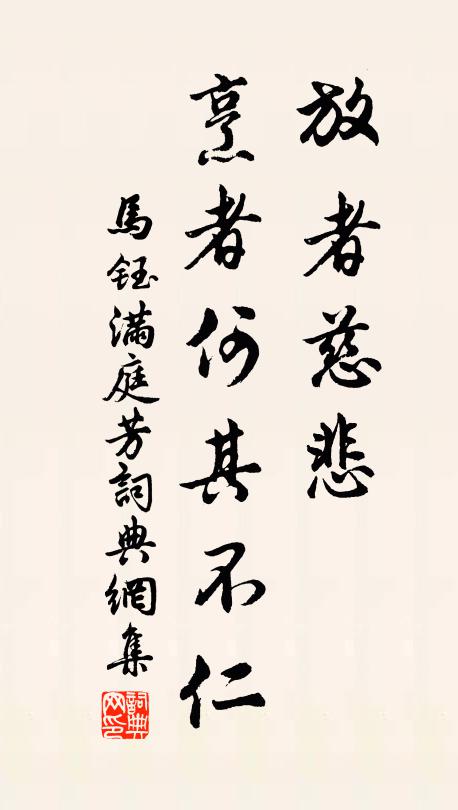 放者慈悲
烹者何其不仁
馬鈺滿庭芳詞典網集
詞典网印